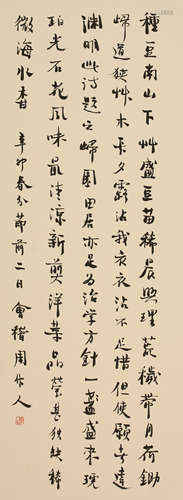 種豆南山下艸盛豆苗稀晨興理荒穢帶月荷鋤
歸道狹艸木長夕露沾我衣衣沾不足惜但使願無違
淵明此詩題之歸園田居亦足為治学方針一盞盛来琥
珀光石花風味最清涼新煎洋菜晶瑩甚独缺稀
微海水香 辛卯春分節前二日會稽周作人